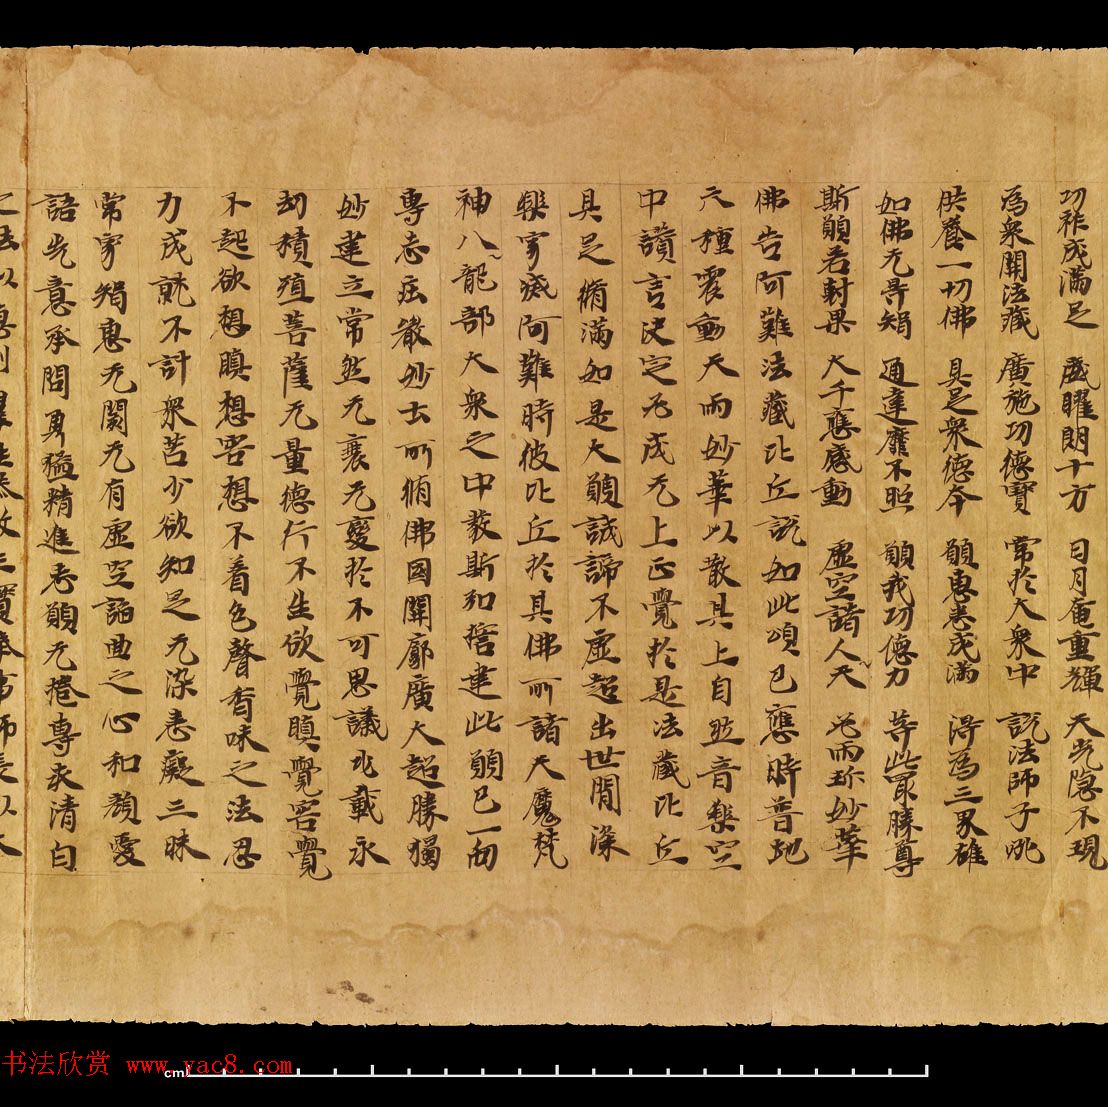 功祚成滿足　威曜朗十方　日月奄重輝　天光隱不現
為眾開法藏　廣施功德寶　常於大眾中　說法師子吼
供養一切佛　具足眾德本　願惠悉成滿　得為三界雄
如佛无㝵智　通達靡不照　願我功德力　等此最勝尊
斯願若尅果　大千應感動　虛空諸人天　當雨珎妙華
佛告阿難法藏比丘說如此頌已應時普地
六種震動天雨妙華以散其上自然音樂空
中讚言決定必成无上正覺於是法藏比丘
具足脩滿如是大願誠諦不虛超出世間深
樂寂滅阿難時彼比丘於其佛所諸天魔梵
神八龍部大眾之中發斯弘誓建此願已一向
專志莊嚴妙土所脩佛國開廓廣大超勝獨
妙建立常然无衰无變於不可思議兆載永
劫積殖菩薩无量德行不生欲覺瞋覺害覺
不起欲想瞋想害想不著色聲香味之法忍
力成就不計眾苦少欲知足无染恚癡三昧
常寂智惠无閡无有虛空諂曲之心和顏愛
語先意承問勇猛精進志願无惓專求清白
之法以惠利羣生恭敬三寶奉事師長以大
書法欣赏 www.yac8.com
cm